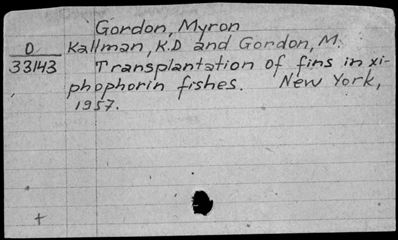 Gordon, Myron
D
33143
Kallman, K.D and Gordon, M.
Transplantation of fins in xi-
phophorin fishes. New York,
1957.
+